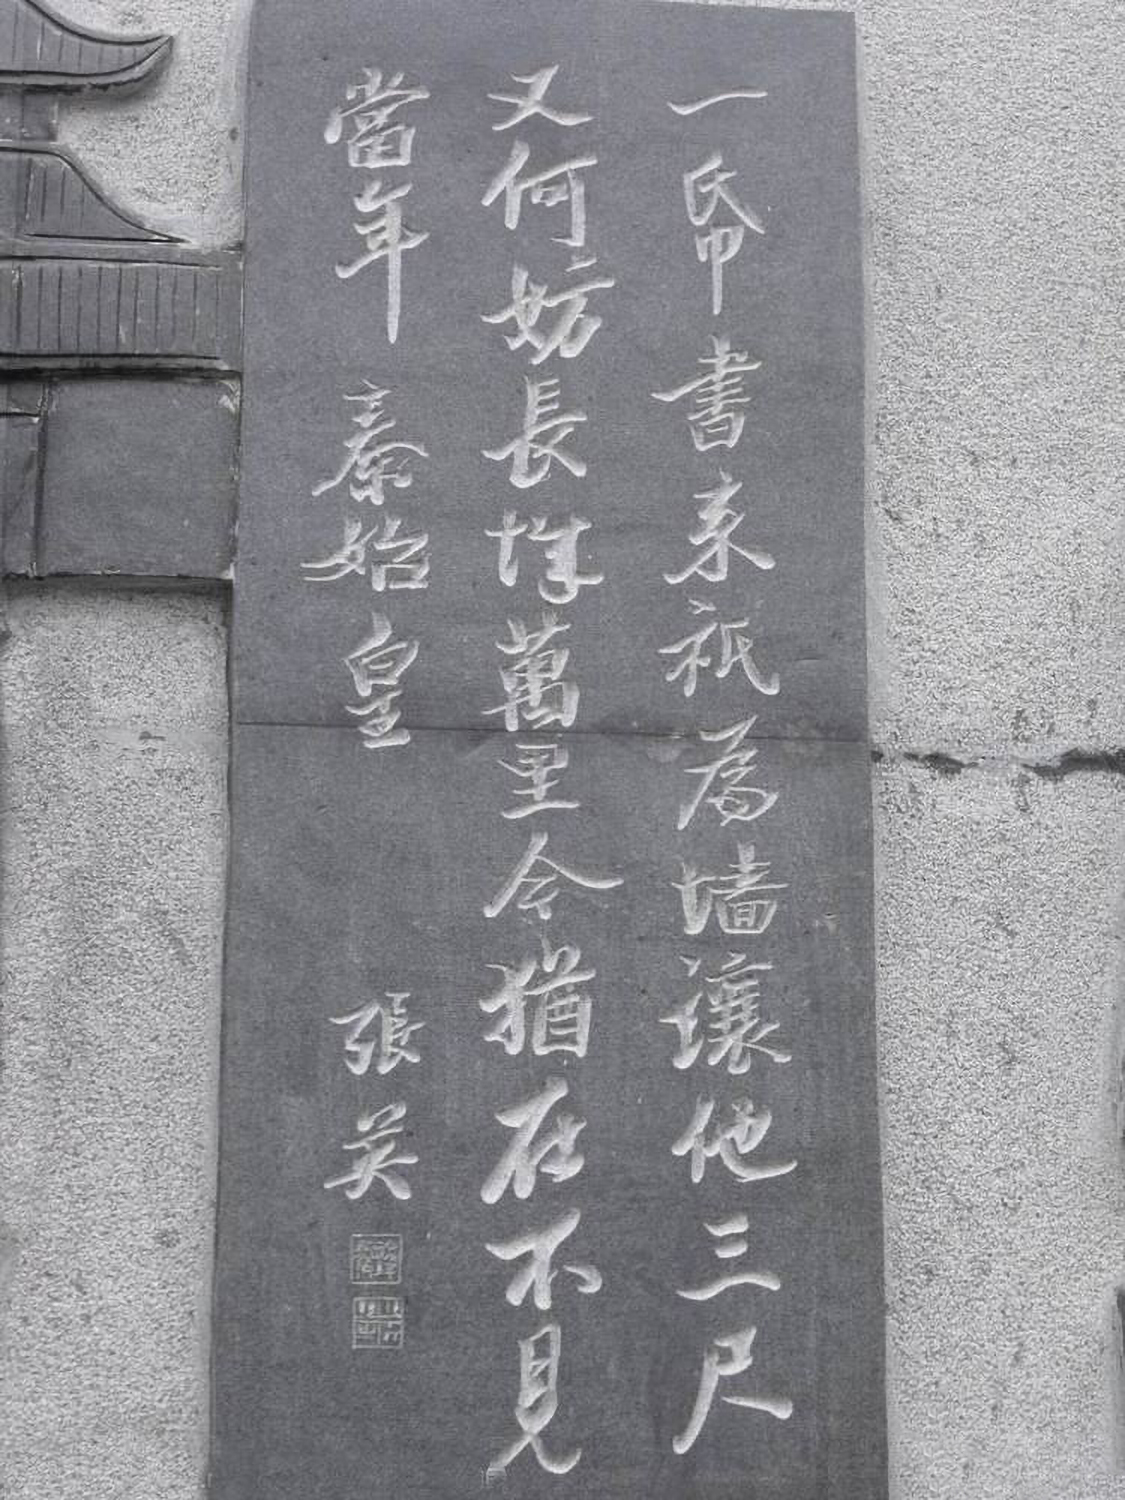 一帋書来祇為墙讓他三尺
又何妨長城萬里今猶在不見
當年秦始皇
張英